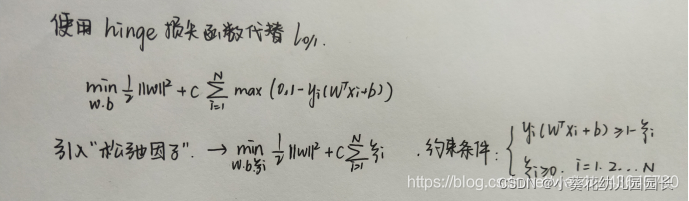 使用 hinge 损失函数代替 l0/1.
min w.b 1/2 ||w||² + C ∑ i=1 N max (0,1 - yi(wᵀxi+b))
引入"松弛因子". → min w.b.ξi 1/2 ||w||² + C ∑ i=1 N ξi .约束条件: { yi(wᵀxi+b) ≥ 1-ξi
ξi ≥ 0. i=1.2...N
https://blog.csdn.net
CSDN @小葵花幼儿园园长